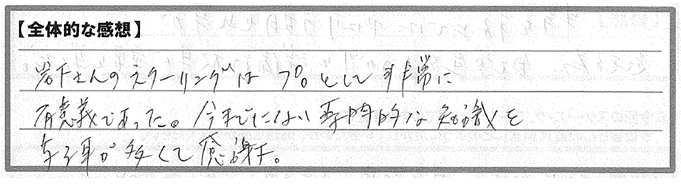 【全体的な感想】
岩下さんのスクーリングは プロ として 非常に
有意義であった。今までにない専門的な知識を
事が多くて感謝す。